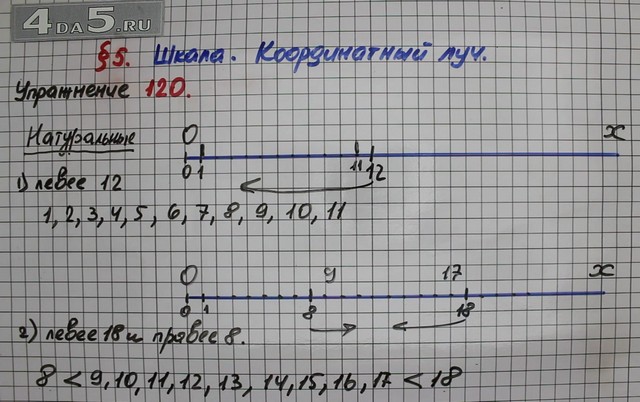 4DA5.RU
§5. Шкала. Координатный луч.
Упражнение 120.
Натуральные
O x
0 1 11 12
1) левее 12
1, 2, 3, 4, 5, 6, 7, 8, 9, 10, 11
O 9 17 x
0 1 8 18
2) левее 18 и правее 8.
8 < 9, 10, 11, 12, 13, 14, 15, 16, 17 < 18